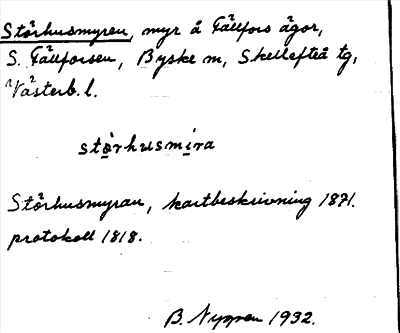 Störhusmyren, myr å Fällfors ägor,
S. Fällforsen, Byske sn, Skellefteå tg,
Västerb. l.
störhusmira
Störhusmyran, kartbeskrivning 1871.
protokoll 1818.
B. 1932.